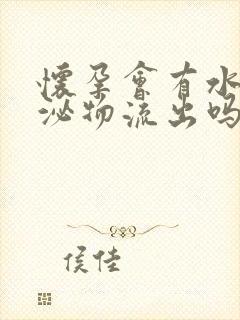 懷孕會有水
泌物流出吗
侯佳